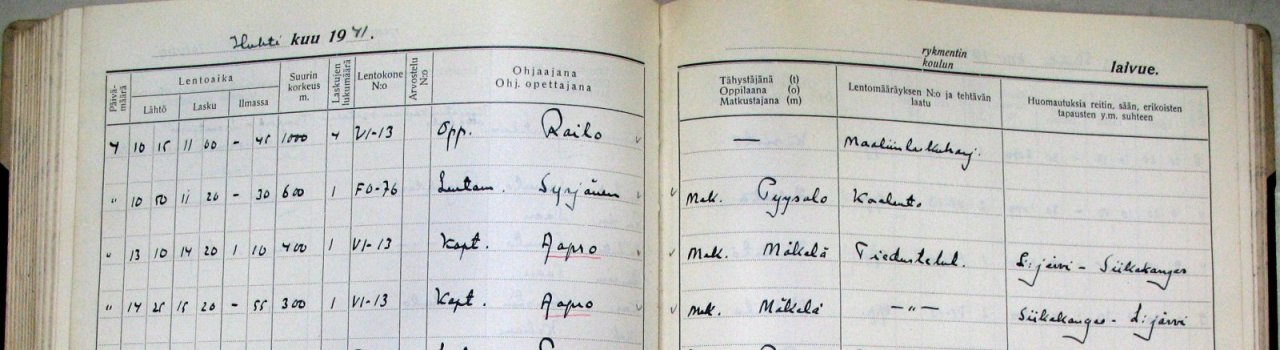 Huhti kuu 1941.
Päivä-määrä Lentoaika Lähtö Lasku Ilmassa Suurin korkeus m. Laskujen lukumäärä Lentokone N:o Arvostelu N:o Ohjaajana Ohj. opettajana
4 10 15 11 00 - 45 1000 4 VI-13 Opp. Railo
" 10 50 11 20 - 30 600 1 FO-76 Luutn. Syrjänen
" 13 10 14 20 1 10 400 1 VI-13 Kapt. Aapro
" 14 25 15 20 - 55 300 1 VI-13 Kapt. Aapro
rykmentin
koulun laivue.
Tähystäjänä (t)
Oppilaana (o)
Matkustajana (m)
Lentomääräyksen N:o ja tehtävän
laatu
Huomautuksia reitin, sään, erikoisten
tapausten y.m. suhteen
— Maaliinlaskuharj.
Mek. Pyysalo Koelento
Mek. Mäkelä Tiedustelul. L:järvi - Siikakangas
Mek. Mäkelä —"— Siikakangas - L:järvi